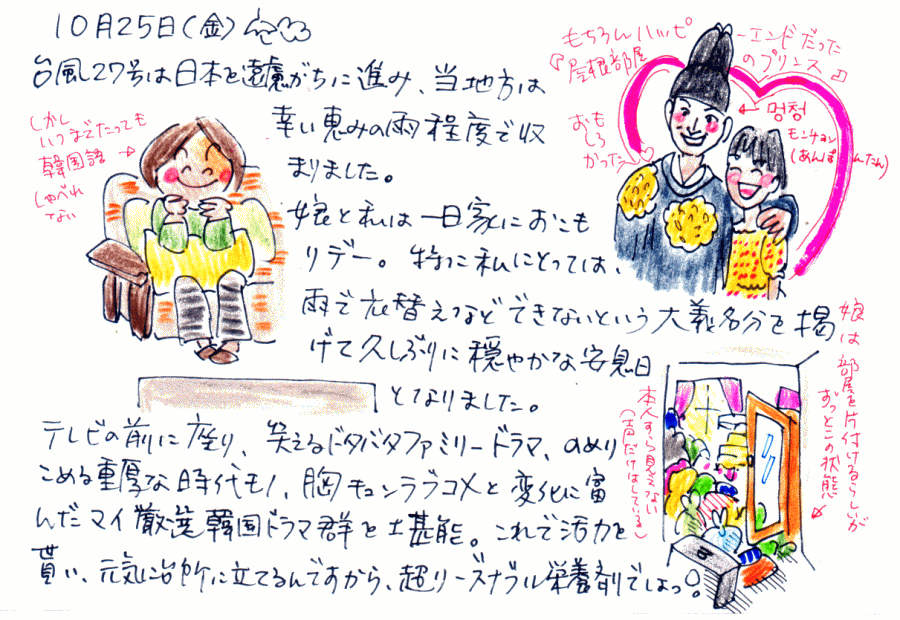 10月25日(金)
台風27号は日本を遠慮がちに進み、当地方は
幸い恵みの雨程度で収
まりました。
娘と私は一日家におこも
りデー。特に私にとっては、
雨で衣替えなどできないという大義名分を掲
げて久しぶりに穏やかな安息日
となりました。
テレビの前に座り、笑えるドタバタファミリードラマ、のめり
こめる重厚な時代モノ、胸キュンラブコメと変化に富
んだマイ厳選韓国ドラマ群を堪能。これで活力を
貰い、元気に台所に立てるんですから、超リーズナブル栄養剤でしょっ!
しかし
いつまでたっても
韓国語
しゃべれ
ない
もちろんハッピーエンドだった
『屋根部屋のプリンス』
おも
しろ
かった♡
← 멍청
モンチョン
(あんぽんたん)
娘は部屋を片付けるらしいが
ずっとこの状態
本人すら見えない
(声だけはしている)